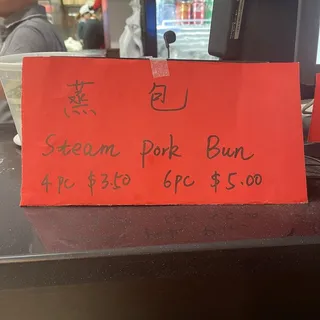 蒸 包
Steam Pork Bun
4 pc $3.50 6pc $5.00